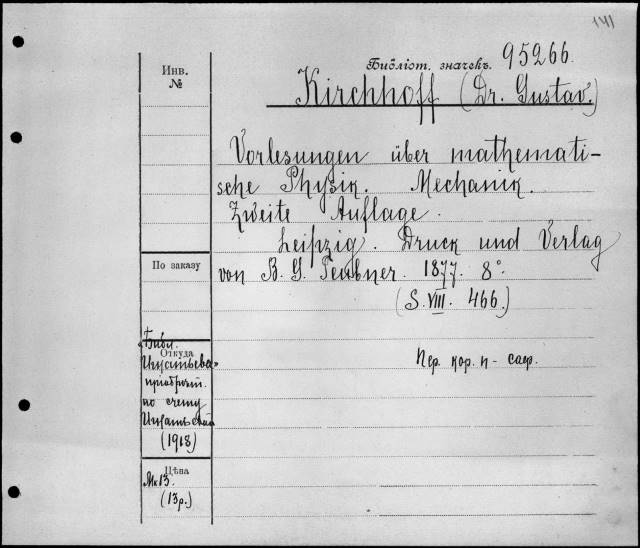 141
Библіот. значекъ. 95266.
Инв.
№
Kirchhoff (Dr. Gustav.)
Vorlesungen über mathemati-
sche Physik. Mechanik.
Zweite Auflage.
Leipzig. Druck und Verlag
По заказу
von B. G. Teubner. 1877. 8°.
(S. VIII. 466.)
"Библ.
Откуда
Игнатьева"
приобрет.
по счету
(1918)
Пер. кор. п-саф.
Цѣна
Мк 13.
(13р.)